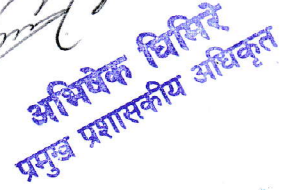 अभिषेक घिमिरे
प्रमुख प्रशासकीय अधिकृत